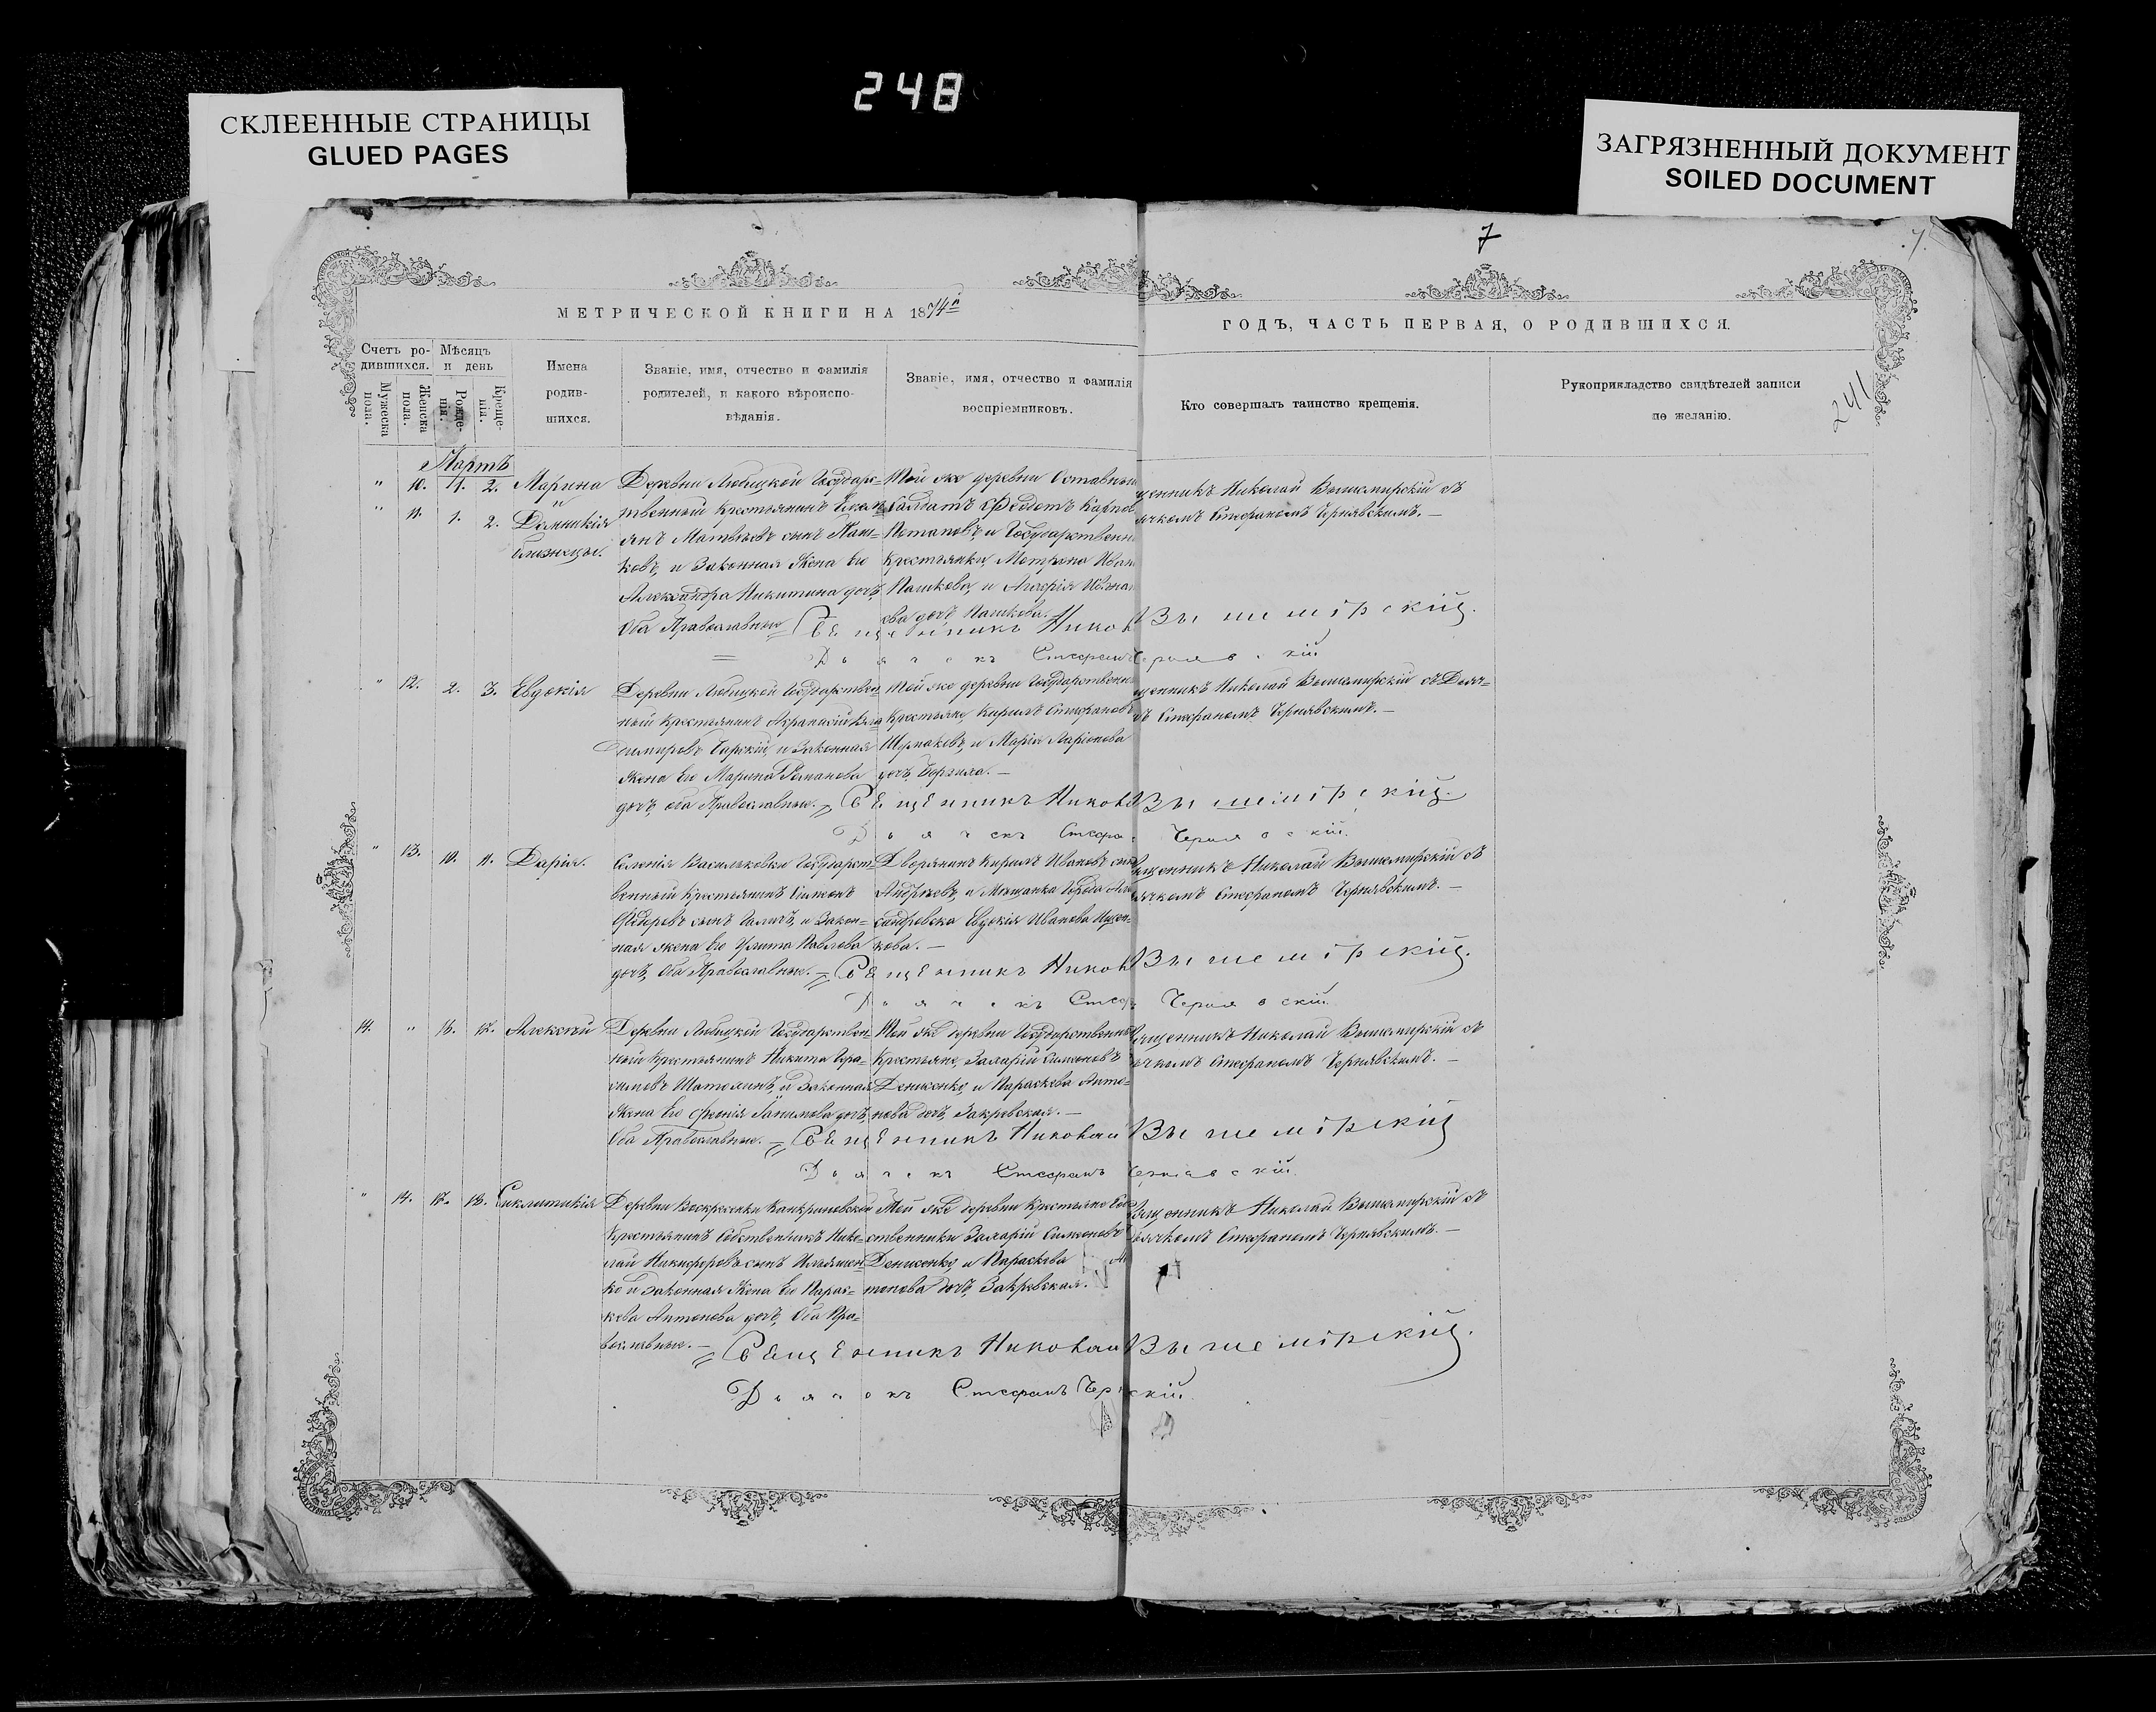 248
СКЛЕЕННЫЕ СТРАНИЦЫ
GLUED PAGES
ЗАГРЯЗНЕННЫЙ ДОКУМЕНТ
SOILED DOCUMENT
7
МЕТРИЧЕСКОЙ КНИГИ НА 1874
ГОДЪ, ЧАСТЬ ПЕРВАЯ, О РОДИВШИХСЯ.
241
Счетъ ро-
дившихся.
Мужеска пола.
Женска пола.
Мѣсяцъ
и день
Рожде-
нія.
Креще-
нія.
Имена
родив-
шихся.
Званіе, имя, отчество и фамилія
родителей, и какого вѣроиспо-
вѣданія.
Званіе, имя, отчество и фамилія
воспріемниковъ.
Кто совершалъ таинство крещенія.
Рукоприкладство свидѣтелей записи
по желанію.
Мартъ
" 10. 1. 2. Марина
" 11. 1. 2. Домникія
близнецы.
Деревни Любицкой Государс=
твенный Крестьянинъ
янъ Матвѣевъ сынъ Паш=
ковъ, и Законная Жена его
Александра Никитина дочь,
Оба Православные
Той же деревни Оставный
Солдатъ Федотъ Карпов
Потаповъ, и Государственн
Крестьянки, Матрона Иван
Пашкова, и Агафія Ивано
ва дочь Пашкова.
щенникъ Николай Вышемирскій съ
ячкомъ Стефаномъ Чернявскимъ. —
Священникъ Никол Вышемірскій.
Дьячекъ Стефанъ Чернявскій
" 12. 2. 3. Евдокія
Деревни Любицкой Государствен=
ный Крестьянинъ
димировъ Царскій, и Законная
Жена его Марина Романова
дочь, оба Православные.
Той же деревни Государственн
Крестьяне, Кирилъ Стефановъ
и Марія Ларіонова
дочь
щенникъ Николай Вышемирскій съ Дьяч=
ъ Стефаномъ Чернявскимъ. —
Священникъ Никола Вышемірскій.
Дьячекъ Стефа Чернявскій.
" 13. 10. 11. Дарія.
Селенія Васильковки Государст=
венный Крестьянинъ Симеонъ
Федоровъ сынъ и Закон=
ная жена его Улита Павлова
дочь, Оба Православные.
Дворянинъ Кирилъ Ивановъ сын
Андреевъ, и Мещанка Города Але
сандровска Евдокія Иванова
кова. —
щенникъ Николай Вышемирскій съ
ячкомъ Стефаномъ Чернявскимъ. —
Священникъ Никол Вышемірскій.
Дьячекъ Стеф Чернявскій.
14. " 16. 17. Алексѣй
Деревни Любицкой Государствен=
ный Крестьянинъ Никита Гера=
симовъ и Законная
Жена его дочь,
Оба Православные. —
Той же деревни Государственные
Крестьяне, Захарій Симеоновъ
Денисенко, и Параскева Анто=
нова дочь, Закревская. —
щенникъ Николай Вышемирскій съ
ячкомъ Стефаномъ Чернявскимъ. —
Священникъ Николай Вышемірскій
Дьячекъ Стефанъ Чернявскій.
" 14. 17. 18. Синклитикія
Деревни Воскресенки Канкриновской
Крестьянинъ Собственникъ Нико=
лай Никифоровъ сынъ Ильяшен=
ко и законная Жена его Парас=
кева Антонова дочь, Оба Пра=
вославные. —
Той же деревни Крестьяне Соб
ственники Захарій Симеоновъ
Денисенко, и Параскева Ан
тонова дочь, Закревская.
щенникъ Николай Вышемирскій съ
ячкомъ Стефаномъ Чернявскимъ. —
Священникъ Николай Вышемірскій.
Дьячекъ Стефанъ Чер скій.